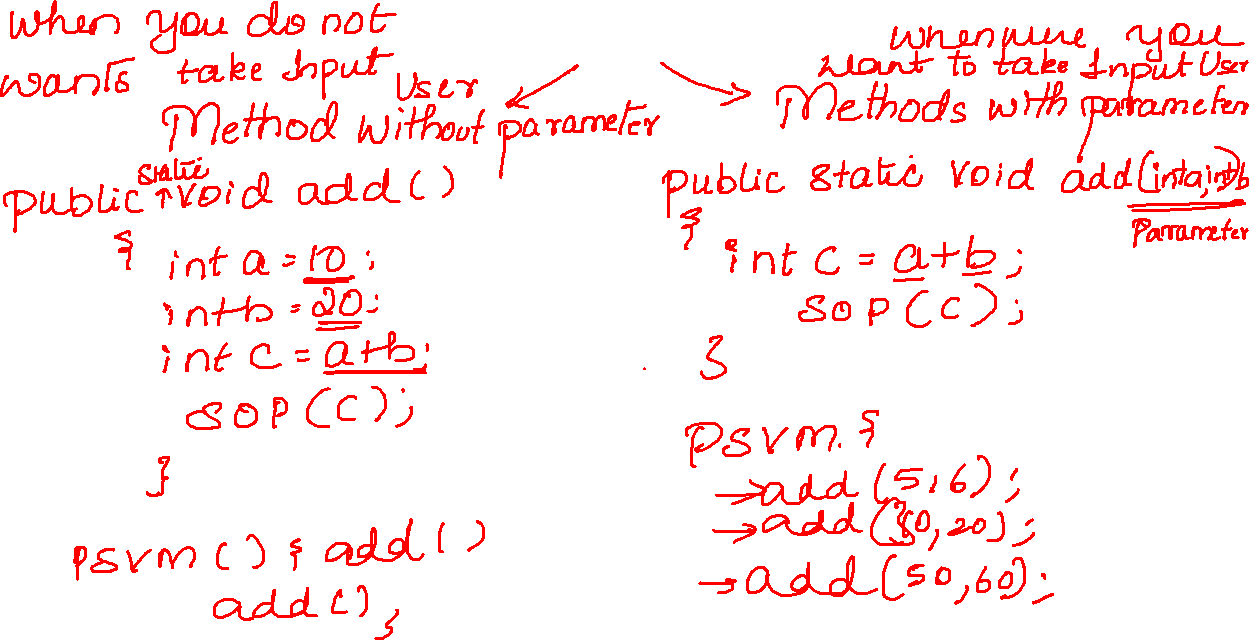 When you do not
wants take Input User
Method without parameter
public static void add()
{ int a = 10;
int b = 20;
int c = a+b;
SOP(C);
}
PSVM() { add()
add();
you
want to take Input User
Methods with parameter
public static void add(int a, int b)
Parameter
{
int c = a+b;
SOP(C);
}
PSVM {
→add(5,6);
→add(,20);
→add(50,60);